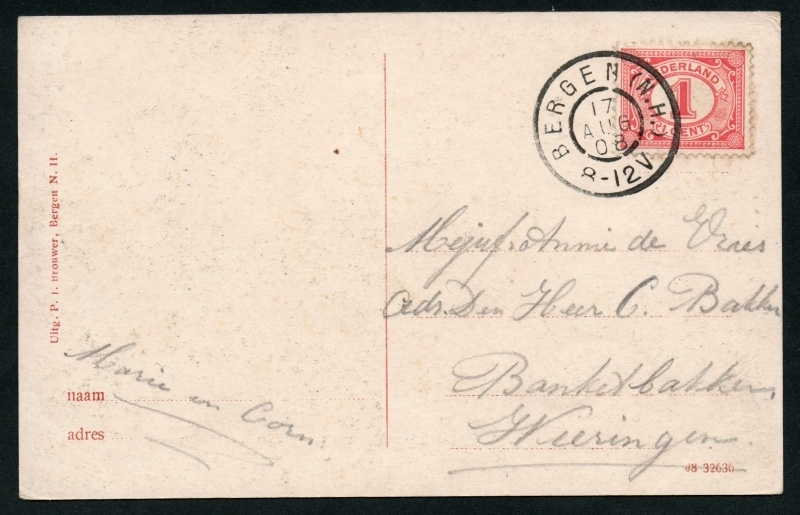 BERGEN (N.H.)
17
AUG
08
8-12V
NEDERLAND
1
CENT
Uitg. P. J. Brouwer, Bergen N. H.
Mejuf. Annie de Vries
Adr. Den Heer C. Bakker
Banketbakker
Wieringen.
Marie en Corn.
naam
adres
08 32636